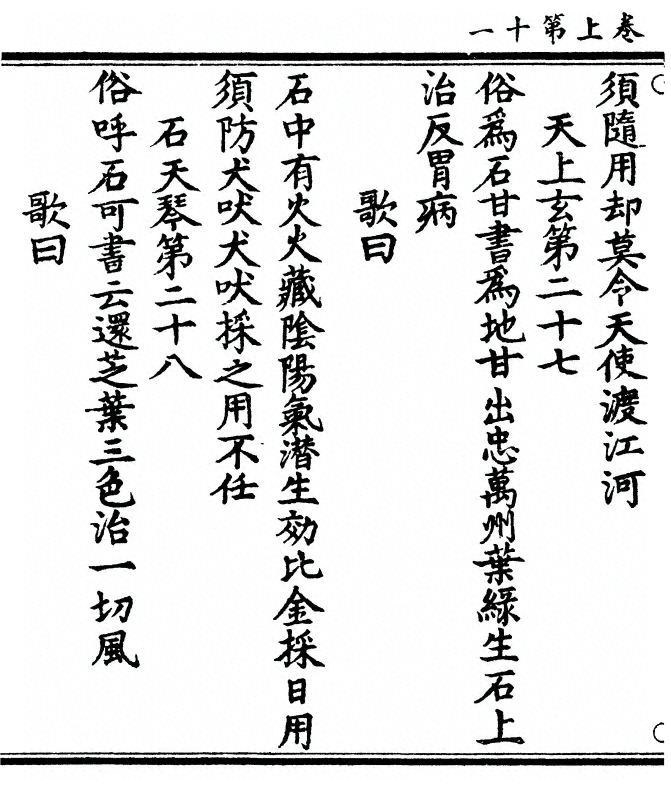 卷上第十一
須隨用却莫令天使渡江河
天上玄第二十七
俗爲石甘書爲地甘出忠萬州葉綠生石上
治反胃病
歌曰
石中有火火藏陰陽氣潛生効比金採日用
須防犬吠犬吠採之用不任
石天琴第二十八
俗呼石可書云還芝葉三色治一切風
歌曰